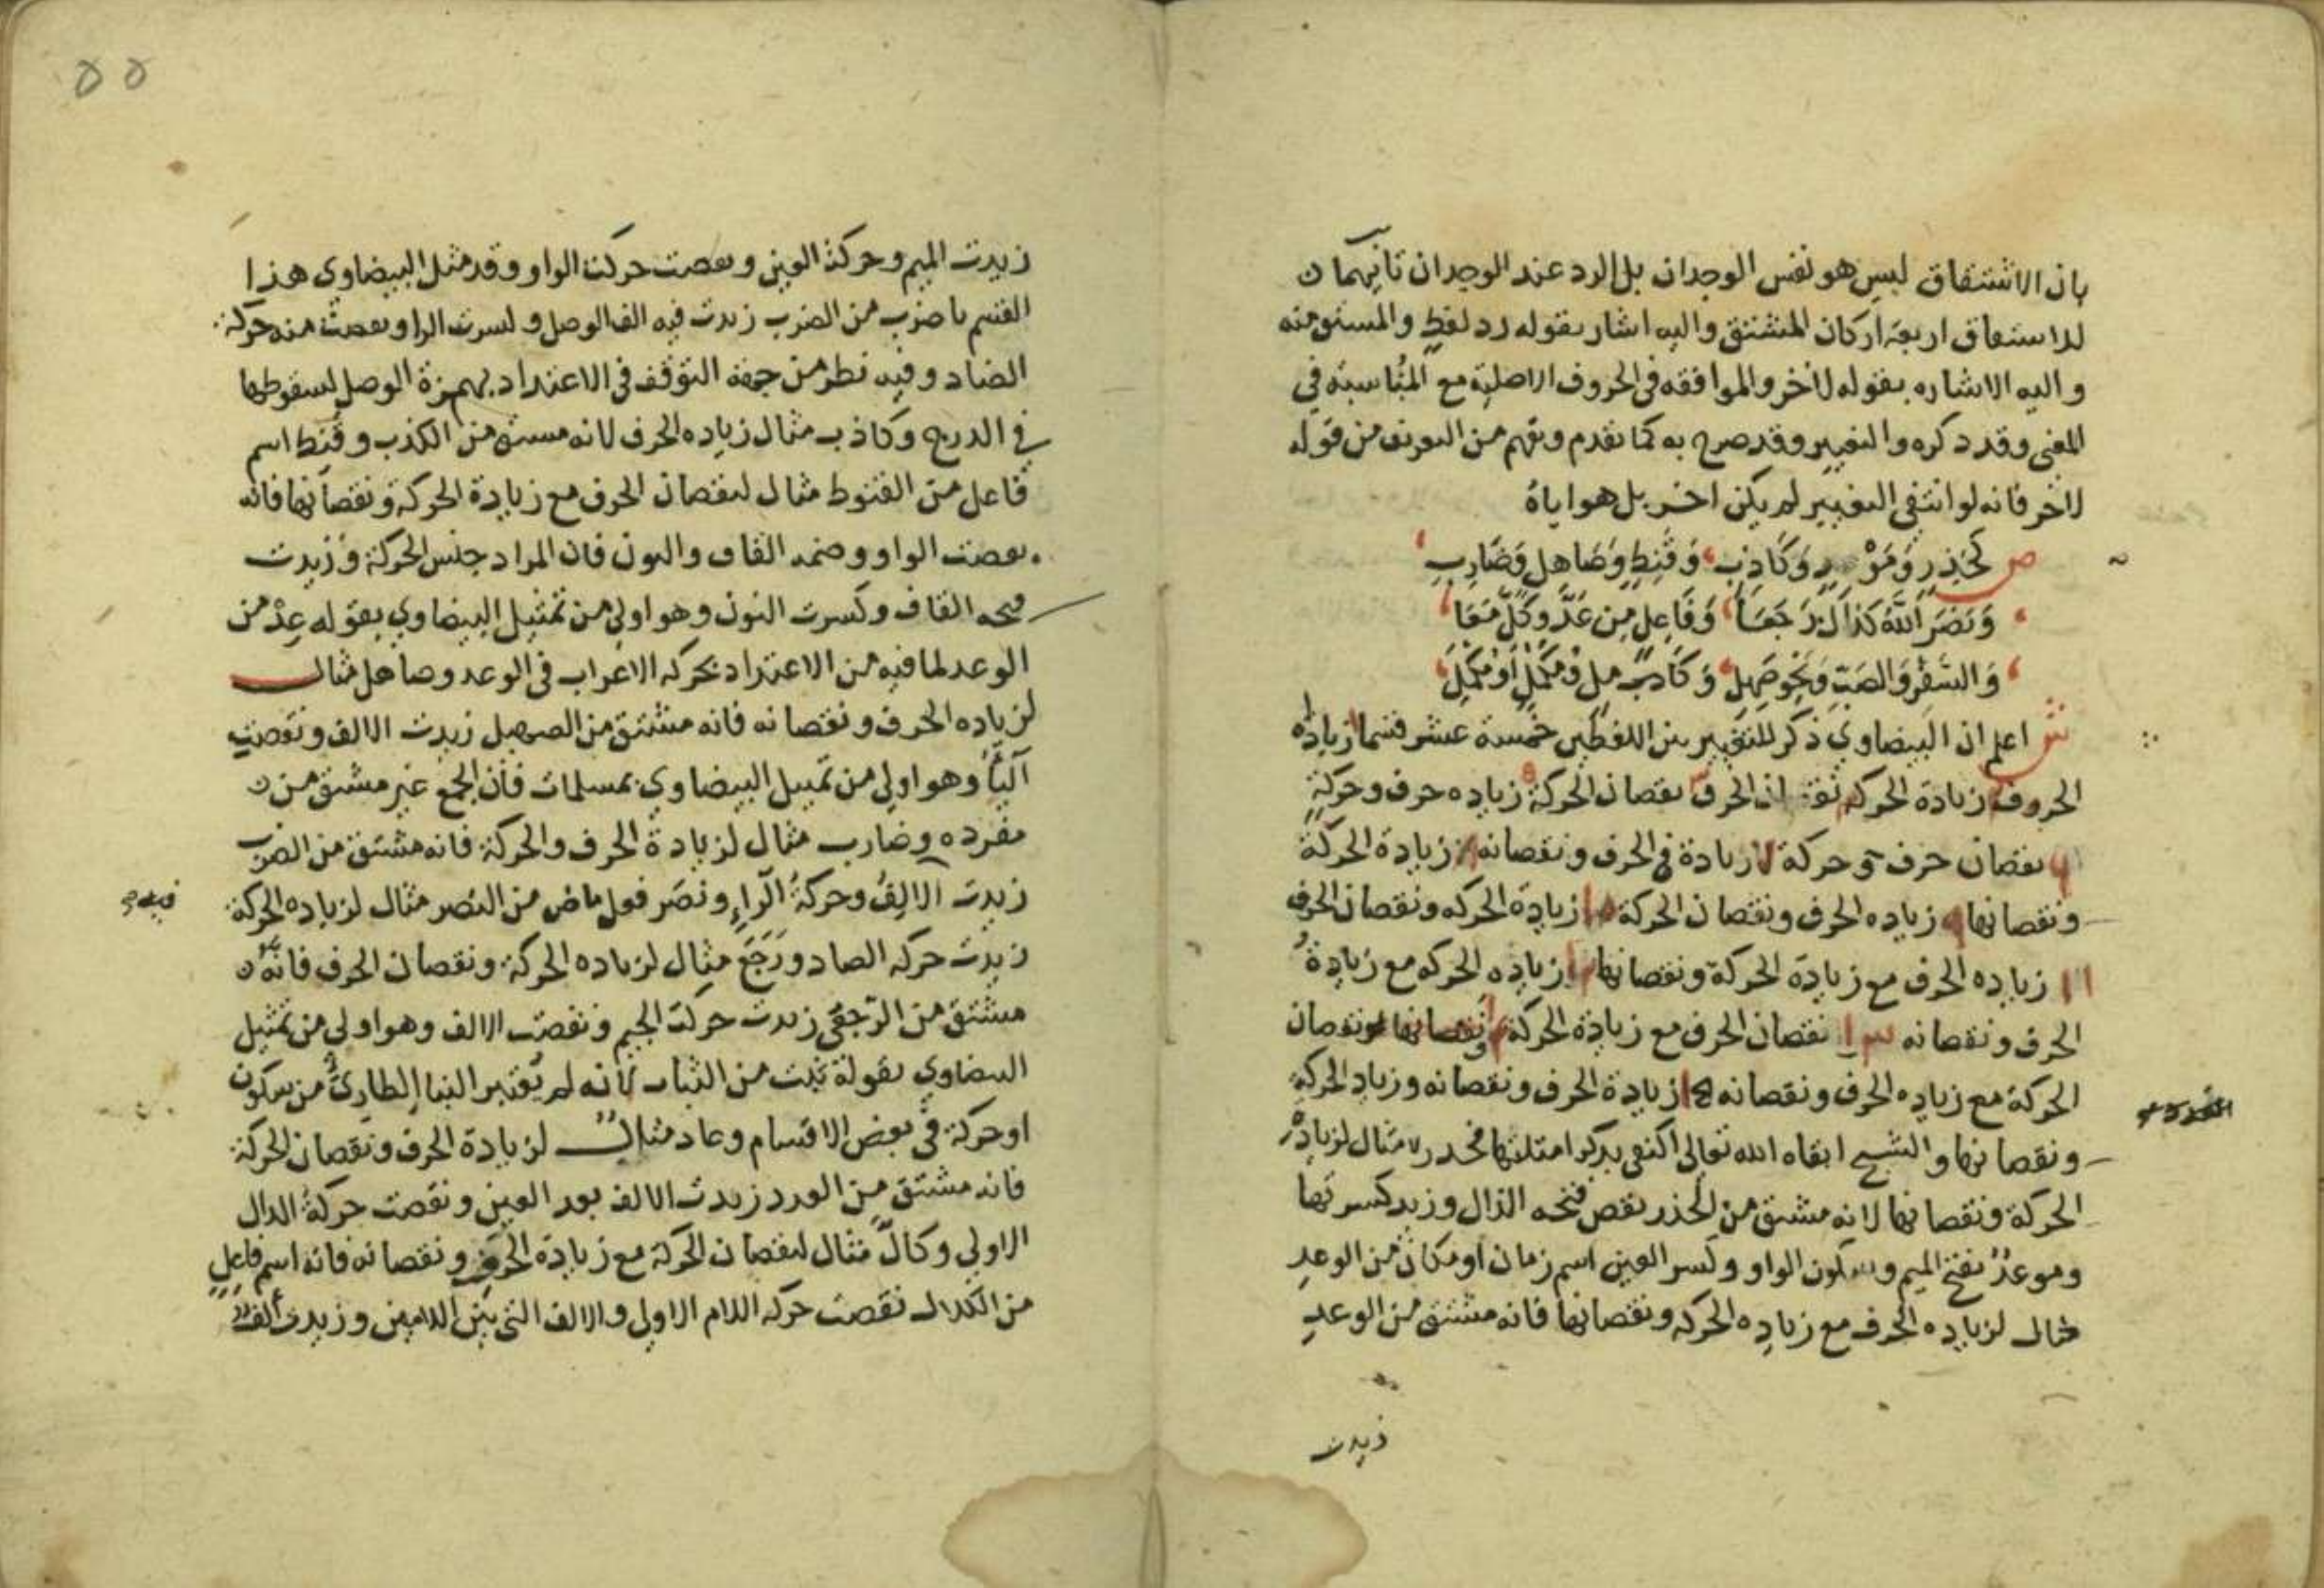 بان الاشتقاق ليس هو نفس الوجدان بل الرد عند الوجدان ثانيهما ان
للاشتقاق اربعة اركان المشتق واليه اشار بقوله رد لفظ والمشتق منه
واليه الاشاره بقوله لاخر والموافقه في الحروف الاصلية مع المناسبة في
المعنى وقد ذكره والتغيير وقد صرح به كما تقدم وتفهم من التعريف من قوله
لاخر فانه لو انتفى التغيير لم يكن اخر بل هو اياه
ص كحَذِرٍ وَمَوْعِدٍ وَكَاذِبِ وَقَنِطٍ وَصَاهِلٍ وَضَارِبِ
وَنَصَرَ اللَّهُ كَذَاكَ رَجَعَا وَفَاعِلٍ مِن عَدَّ وكَلَّ مَعَا
وَ وَنَحْوِ صَهِلْ وَ
ش اعلم ان البيضاوي ذكر للتغيير بين اللفظين خمسة عشر قسما ١ زيادة
الحروف ٢ زيادة الحركه ٣ نقصان الحرف ٤ نقصان الحركة ٥ زياده حرف وحركة
٦ نقصان حرف وحركة ٧ زيادة في الحرف ونقصانه ٨ زيادة الحركة
ونقصانها ٩ زياده الحرف ونقصان الحركة ١٠ زيادة الحركه ونقصان الحرف
١١ زياده الحرف مع زيادة الحركة ونقصانها ١٢ زياده الحركه مع زيادة
الحرف ونقصانه ١٣ نقصان الحرف مع زيادة الحركة ونقصانها ١٤ ونقصان
الحركة مع زياده الحرف ونقصانه ١٥ زيادة الحرف ونقصانه وزياد الحركة
ونقصانها والشيخ ابقاه الله تعالى اكتفى بذكر امثلتها فحذر مثال لزيادة
الحركة ونقصانها لانه مشتق من الحذر نقص فتحه الذال وزيد كسرتها
وموعد بفتح الميم وسكون الواو وكسر العين اسم زمان او مكان من الوعد
مثال لزياده الحرف مع زياده الحركه ونقصانها فانه مشتق من الوعد
زيدت
٥٥
زيدت الميم وحركة العين ونقصت حركة الواو وقد مثل البيضاوي هذا
القسم باضرب من الضرب زيدت فيه الف الوصل وكسرت الرا ونقصت منه حركة
الضاد وفيه نظر من جهة التوقف في الاعتداد بهمزة الوصل لسقوطها
في الدرج وكاذب مثال زياده الحرف لانه مشتق من الكذب وقنط اسم
فاعل من القنوط مثال لنقصان الحرف مع زيادة الحركة ونقصانها فانه
نقصت الواو وضمه القاف والنون فان المراد جنس الحركة وزيدت
فتحه القاف وكسرت النون وهو اولى من تمثيل البيضاوي بقوله عِدْ من
الوعد لما فيه من الاعتداد بحركه الاعراب في الوعد وصاهل مثال
لزياده الحرف ونقصانه فانه مشتق من الصهيل زيدت الالف ونقصت
اليا وهو اولى من تمثيل البيضاوي بمسلمات فان الجمع غير مشتق من
مفرده وضارب مثال لزيادة الحرف والحركة فانه مشتق من الضرب
زيدت الالف وحركة الراء ونَصَر فعل ماض من النصر مثال لزياده الحركة
زيدت حركه الصاد ورَجَعَ مثال لزياده الحركة ونقصان الحرف فانه
مشتق من الرجعى زيدت حركة الجيم ونقصت الالف وهو اولى من تمثيل
البيضاوي بقوله من لانه لم يعتبر البنا الطاري من سكون
او حركة في بعض الاقسام وعاد مثال لزيادة الحرف ونقصان الحركة
فانه مشتق من العدد زيدت الالف بعد العين ونقصت حركة الدال
الاولى وكالّ مثال لنقصان الحركة مع زيادة الحرف ونقصانه فانه اسم فاعل
من الكلال نقصت حركه اللام الاولى والالف التي بين اللامين وزيدت الف